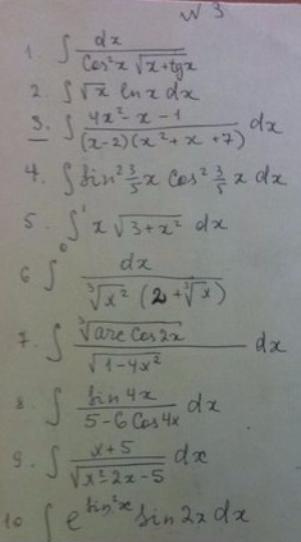 N 3
1. ∫ dx / (cos²x √(x+tgx))
2. ∫ √x ln x dx
3. ∫ (4x² - x - 1) / ((x-2)(x² + x + 7)) dx
4. ∫ sin² 3/5 x cos² 3/5 x dx
5. ∫₀¹ x √(3+x²) dx
6 ∫ dx / (∛x² (2 + ∛x))
7. ∫ ∛(arc cos 2x) / √(1-4x²) dx
8. ∫ sin 4x / (5-6 cos 4x) dx
9. ∫ (x+5) / √(x²-2x-5) dx
10 ∫ e^(sin²x) sin 2x dx